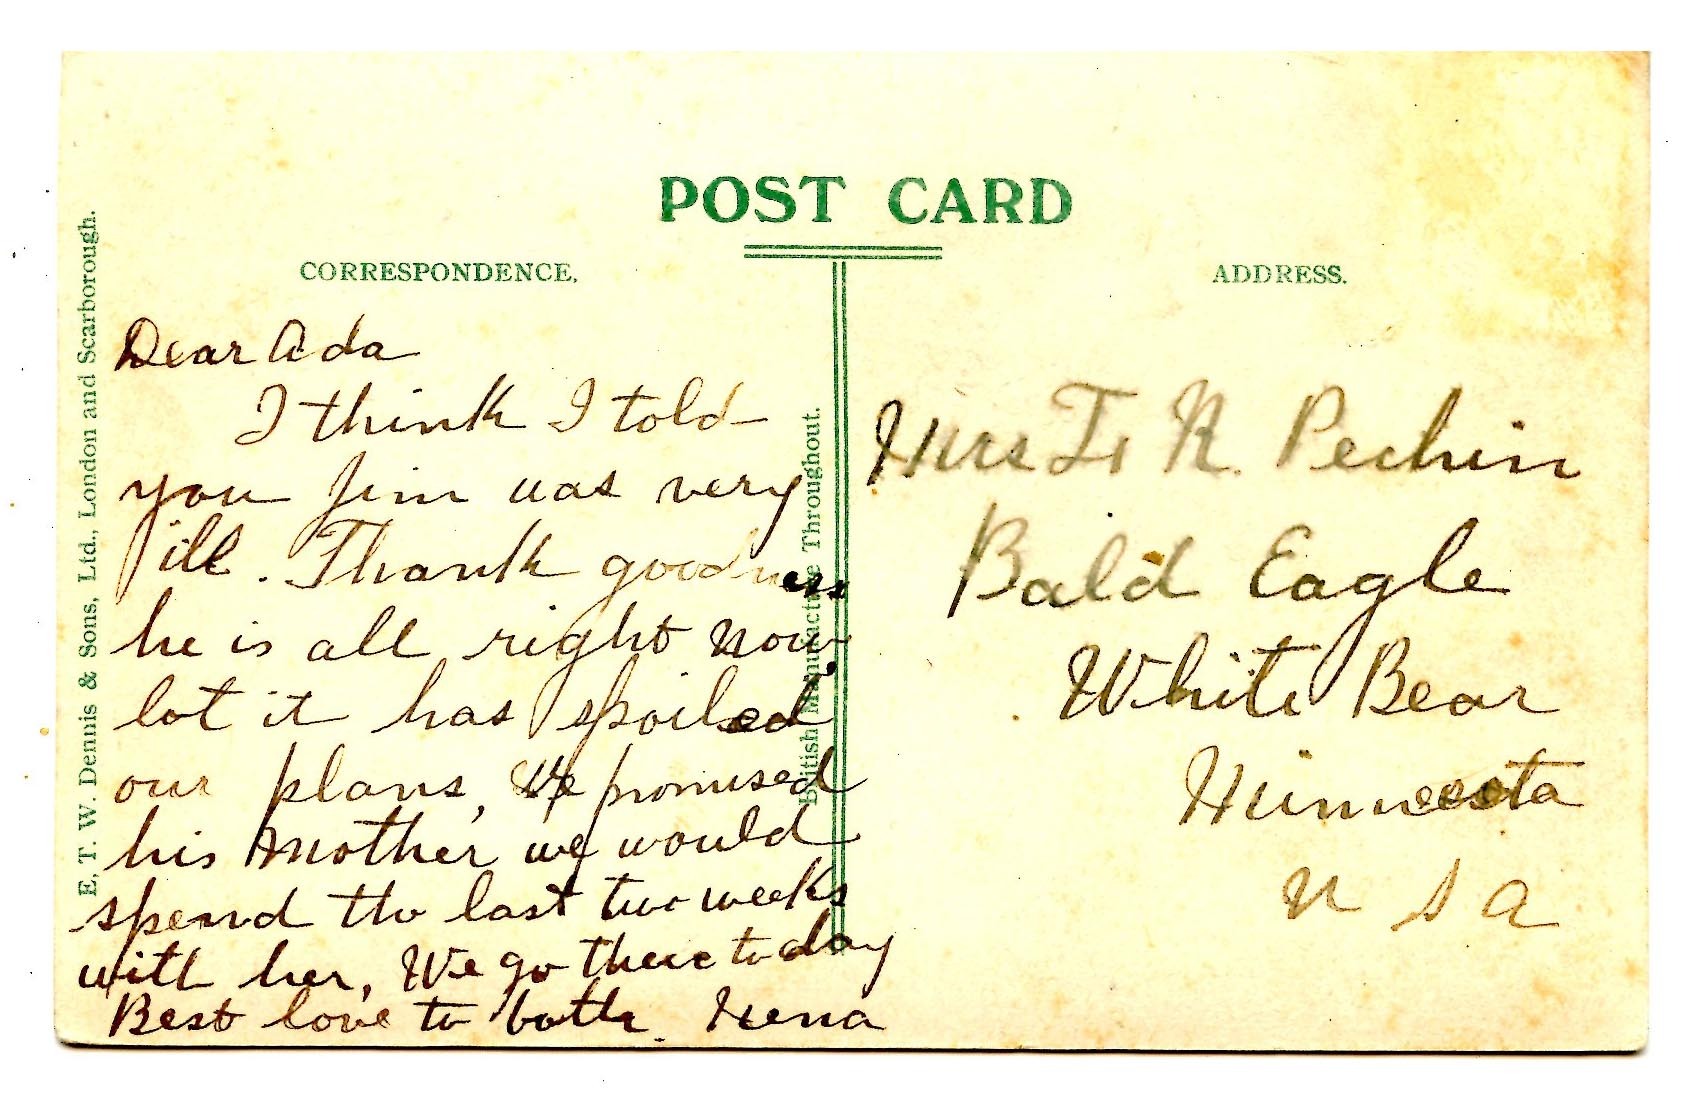 POST CARD
CORRESPONDENCE.
Dear Ada
I think I told
you Jim was very
ill. Thank goodness
he is all right now,
but it has spoiled
our plans, We promised
his Mother we would
spend the last two weeks
with her, We go there today
Best love to both.
ADDRESS.
Mrs R. Pechin
Bald Eagle
White Bear
Minnesota
U S A
E. T. W. Dennis & Sons, Ltd., London and Scarborough.
British Manufacture Throughout.